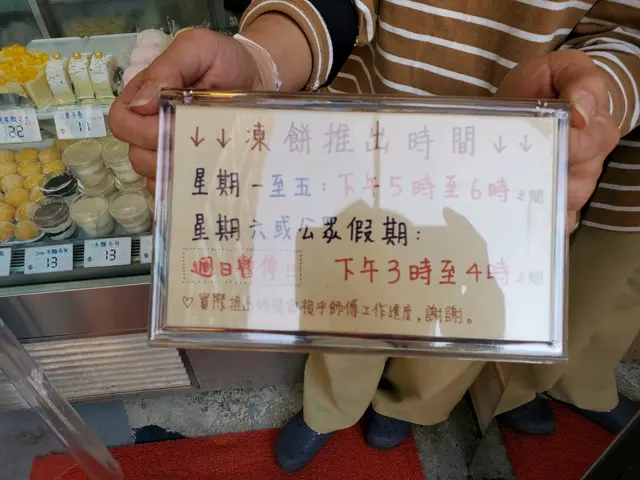 ↓↓凍餅推出時間↓↓
星期一至五：下午5時至6時之間
星期六或公眾假期：
週日暫停!! 下午3時至4時之間
♡實際推出時間視乎師傅工作進度，謝謝。
22
11
13
13
13